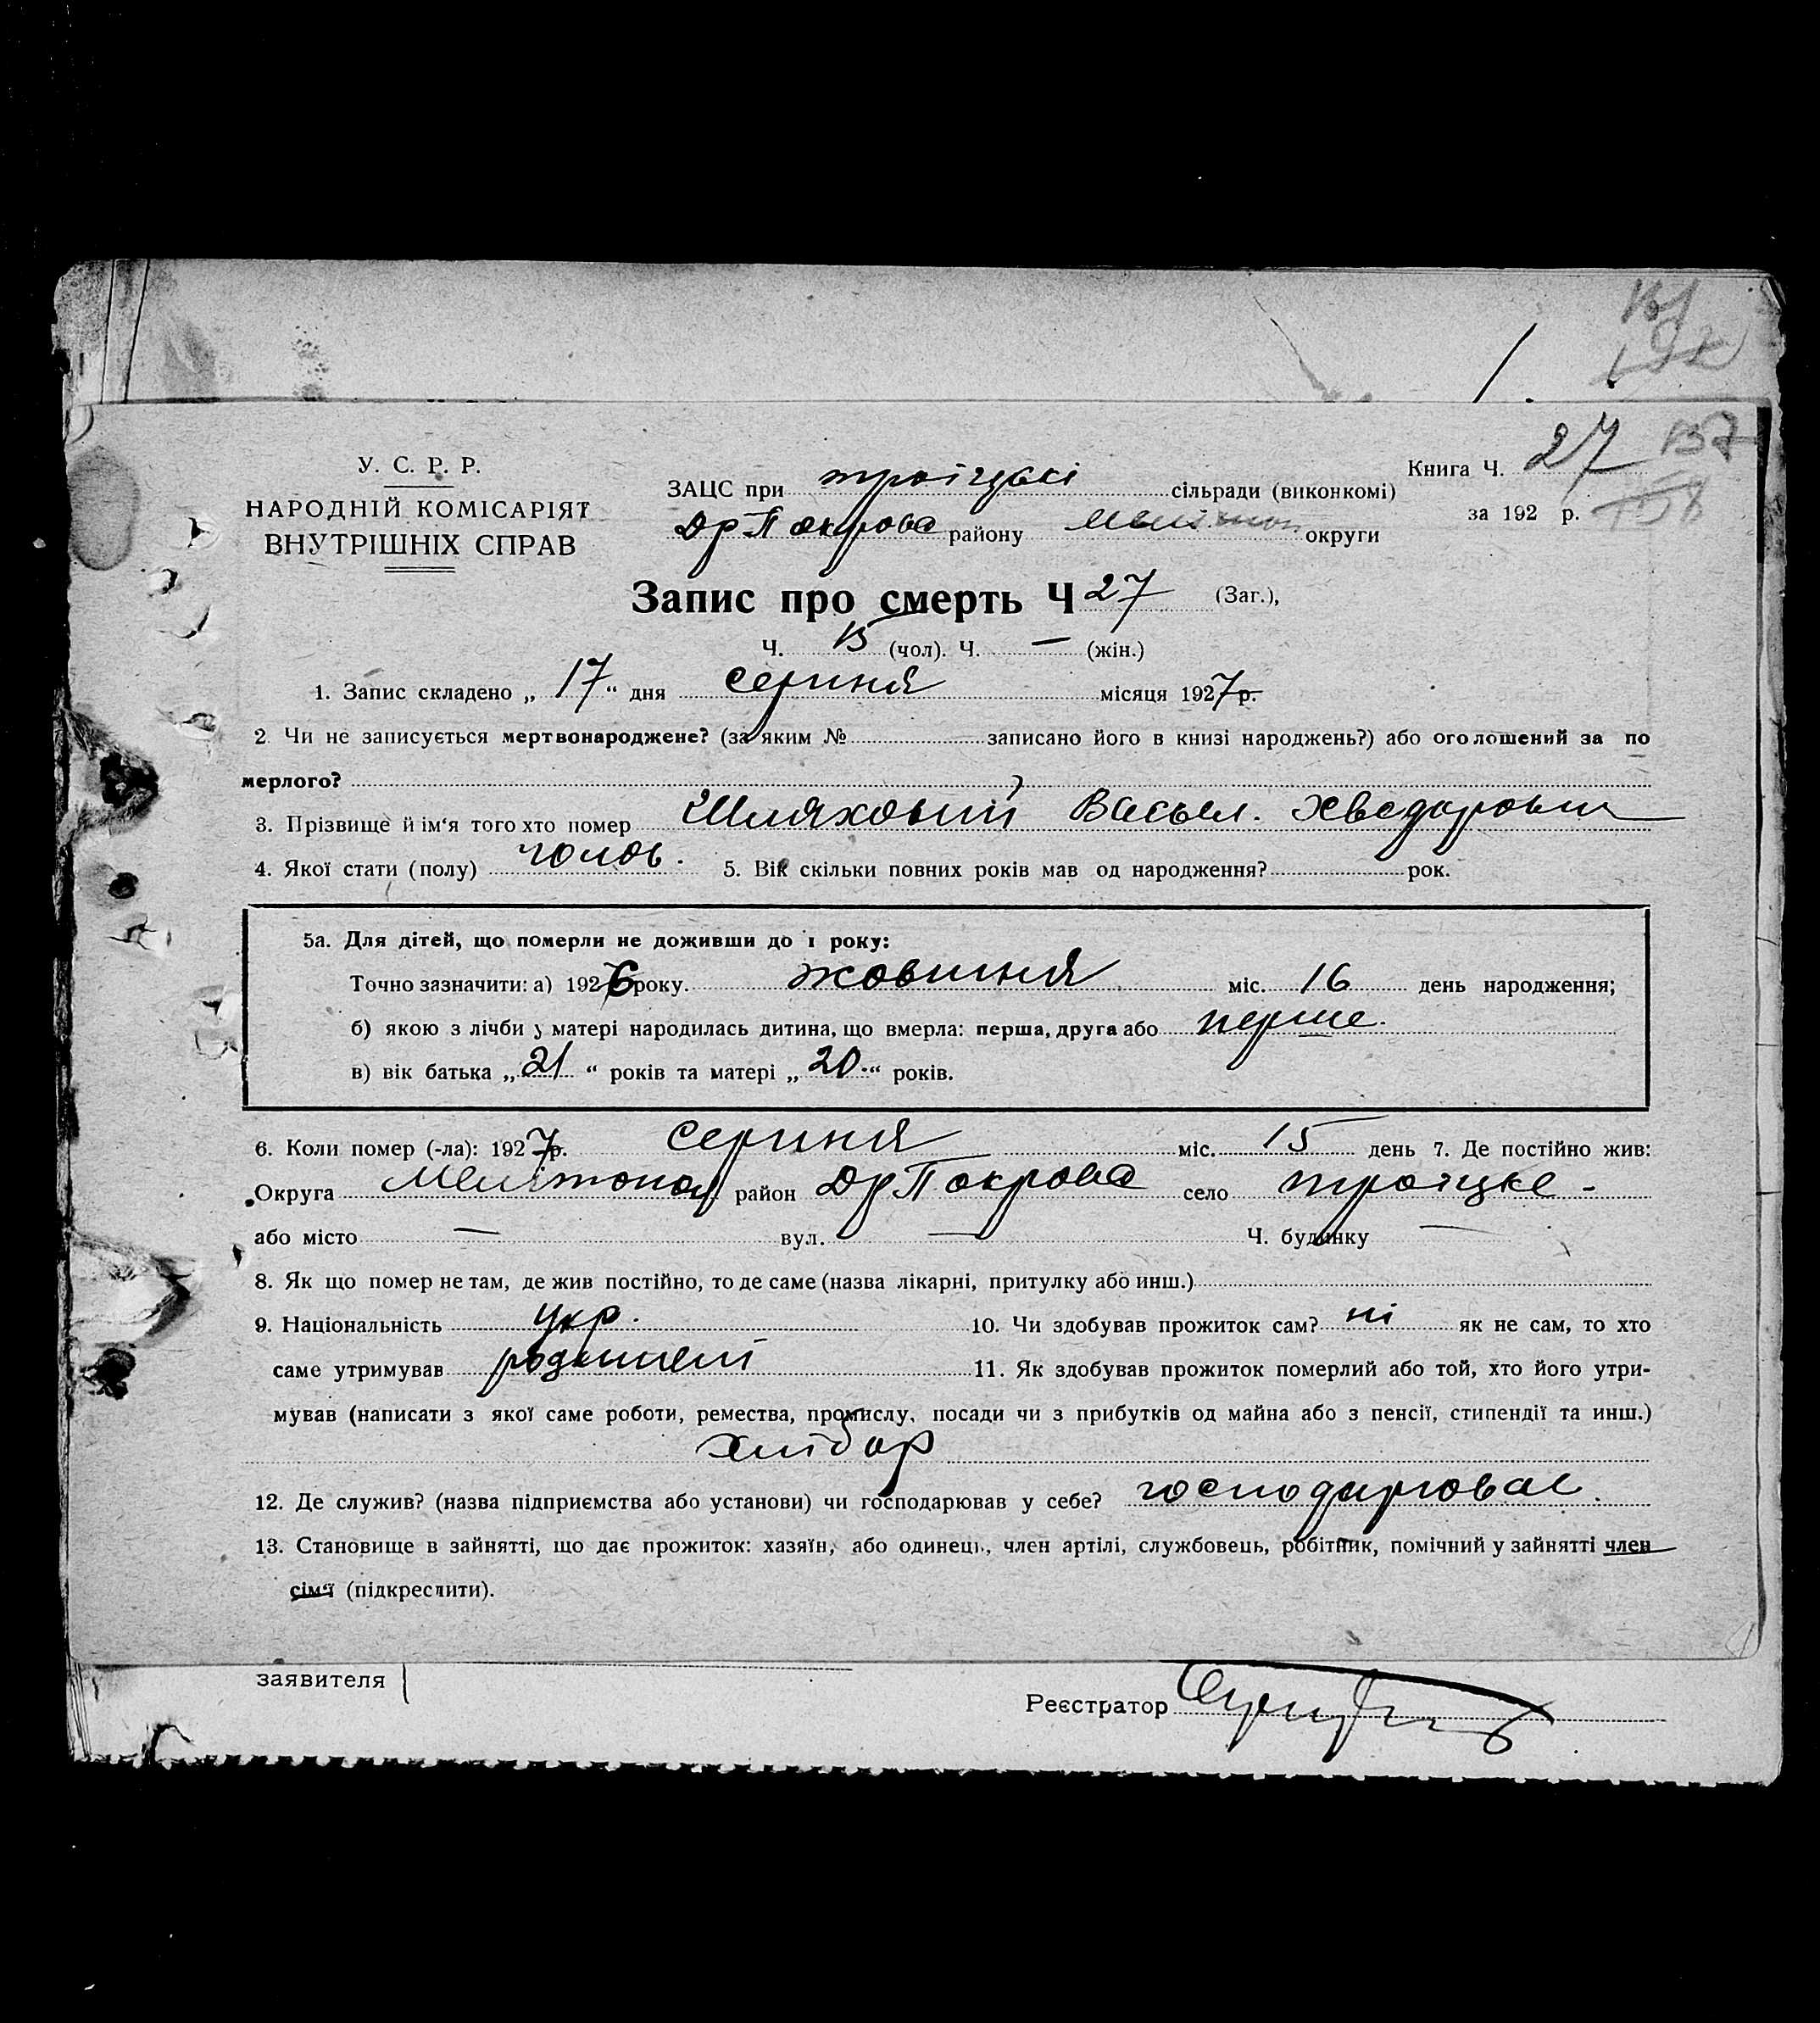 1.
У. С. Р. Р.
НАРОДНІЙ КОМІСАРІЯТ
ВНУТРІШНІХ СПРАВ
ЗАЦС при троїцькі сільради (виконкомі)
Др Покрова району Мелітоп. округи
Книга Ч. 27 137
за 192 р. 158
Запис про смерть Ч 27 (Заг.),
Ч. 15 (чол). Ч. — (жін.)
1. Запис складено „ 17 “ дня серпня місяця 1927 р.
2 Чи не записується мертвонароджене? (за яким № записано його в книзі народжень?) або оголошений за по
мерлого?
3. Прізвище й ім‘я того хто помер Шляховий Васыл. Хведорович
4. Якої стати (полу) чолов. 5. Вік скільки повних років мав од народження? рок.
5а. Для дітей, що померли не доживши до 1 року:
Точно зазначити: а) 1926 року. жовтня міс. 16 день народження;
б) якою з лічби у матері народилась дитина, що вмерла: перша, друга або перше.
в) вік батька „ 21 “ років та матері „ 20. “ років.
6. Коли помер (-ла): 1927 р. серпня міс. 15 день 7. Де постійно жив:
Округа Мелітопол район Др Покрова село троїцке -
або місто — вул. — Ч. будинку —
8. Як що помер не там, де жив постійно, то де саме (назва лікарні, притулку або инш.)
9. Національність укр. 10. Чи здобував прожиток сам? ні як не сам, то хто
саме утримував 11. Як здобував прожиток померлий або той, хто його утри-
мував (написати з якої саме роботи, ремества, промислу, посади чи з прибутків од майна або з пенсії, стипендії та инш.)
хлібор
12. Де служив? (назва підприємства або установи) чи господарював у себе? господарював.
13. Становище в зайнятті, що дає прожиток: хазяїн, або одинець, член артілі, службовець, робітник, помічний у зайнятті член
сім‘ї (підкреслити).
заявителя
Реєстратор